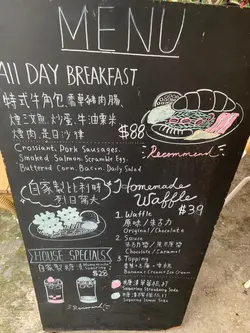 MENU
All DAY BREAKFAST
特式牛角包, 香草豬肉腸,
煙三文魚, 炒蛋, 牛油粟米
煙肉, 是日沙律 $88
Crossiant. Pork Sausages.
Smoked Salmon. Scramble Egg.
Buttered Corn. Bacon. Daily Salad
Recommend
自家製比利時
窩夫
Homemade
Waffle
$39
1. Waffle
原味 /
Original / Chocolate
2. Sauce
Chocolate / Caramel
3. Topping
Banana & Cream & Ice Cream
HOUSE SPECIALS
自家製糖漬
Homemade
$26
Sugaring Strawberry Soda
Sugaring Lemon Soda